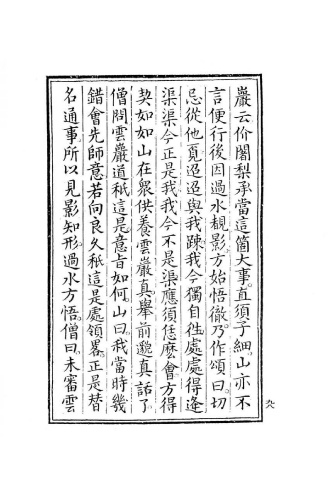 巖云价闍梨承當這箇大事直須子細山亦不
言便行後因過水覩影方始悟徹乃作頌曰切
忌從他覓迢迢與我踈我今獨自往處處得逢
渠渠今正是我我今不是渠應須恁麼會方得
契如如山在衆供養雲巖真舉前邈真話了
僧問雲巖道秖這是意旨如何山曰我當時幾
錯會先師意若向良久秖這是處領畧正是替
名通事所以見影知形過水方悟僧曰未審雲